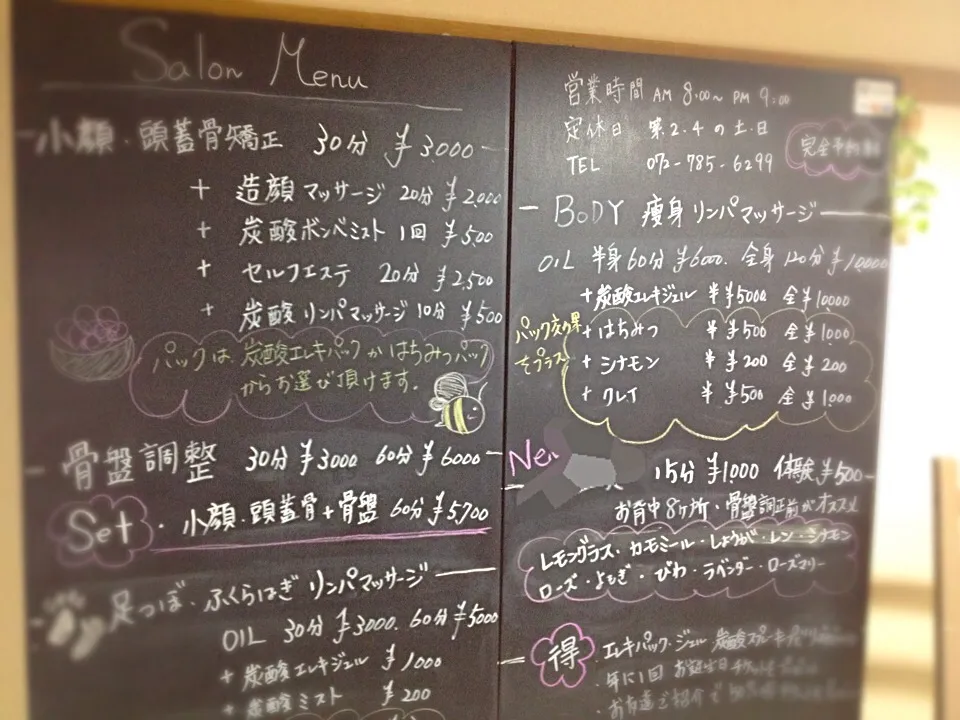 Salon Menu
小顔・頭蓋骨矯正 30分 ¥3000
+ 造顔マッサージ 20分 ¥2,000
+ 炭酸ボンベミスト 1回 ¥500
+ セルフエステ 20分 ¥2,500
+ 炭酸リンパマッサージ 10分 ¥500
パックは 炭酸エレキパックかはちみつパック
からお選び頂けます。
骨盤調整 30分 ¥3000 60分 ¥6000
Set・小顔・頭蓋骨+骨盤 60分 ¥5700
足つぼ・ふくらはぎ リンパマッサージ
OIL 30分 ¥3000. 60分 ¥5000
+ 炭酸エレキジェル ¥1000
+ 炭酸ミスト ¥200
営業時間 AM 8:00~PM 9:00
定休日 第2.4の土.日
TEL 072-785-6299
完全予約制
BODY 痩身リンパマッサージ
OIL 半身60分 ¥6000. 全身120分 ¥10000
+炭酸エレキジェル 半¥5000 全¥10000
パック効果
をプラス
+ はちみつ 半¥500 全¥1000
+ シナモン 半¥200 全¥200
+ クレイ 半¥500 全¥1,000
New 15分 ¥1000 体験¥500
お背中8ヶ所・骨盤調正前がオススメ
レモングラス・カモミール・しょうが・レン・シナモン
ローズ・よもぎ・びわ・ラベンダー・ローズマリー
得 エレキパック・ジェル・炭酸スプレー
・年に1回 お誕生日
・お友達ご紹介で